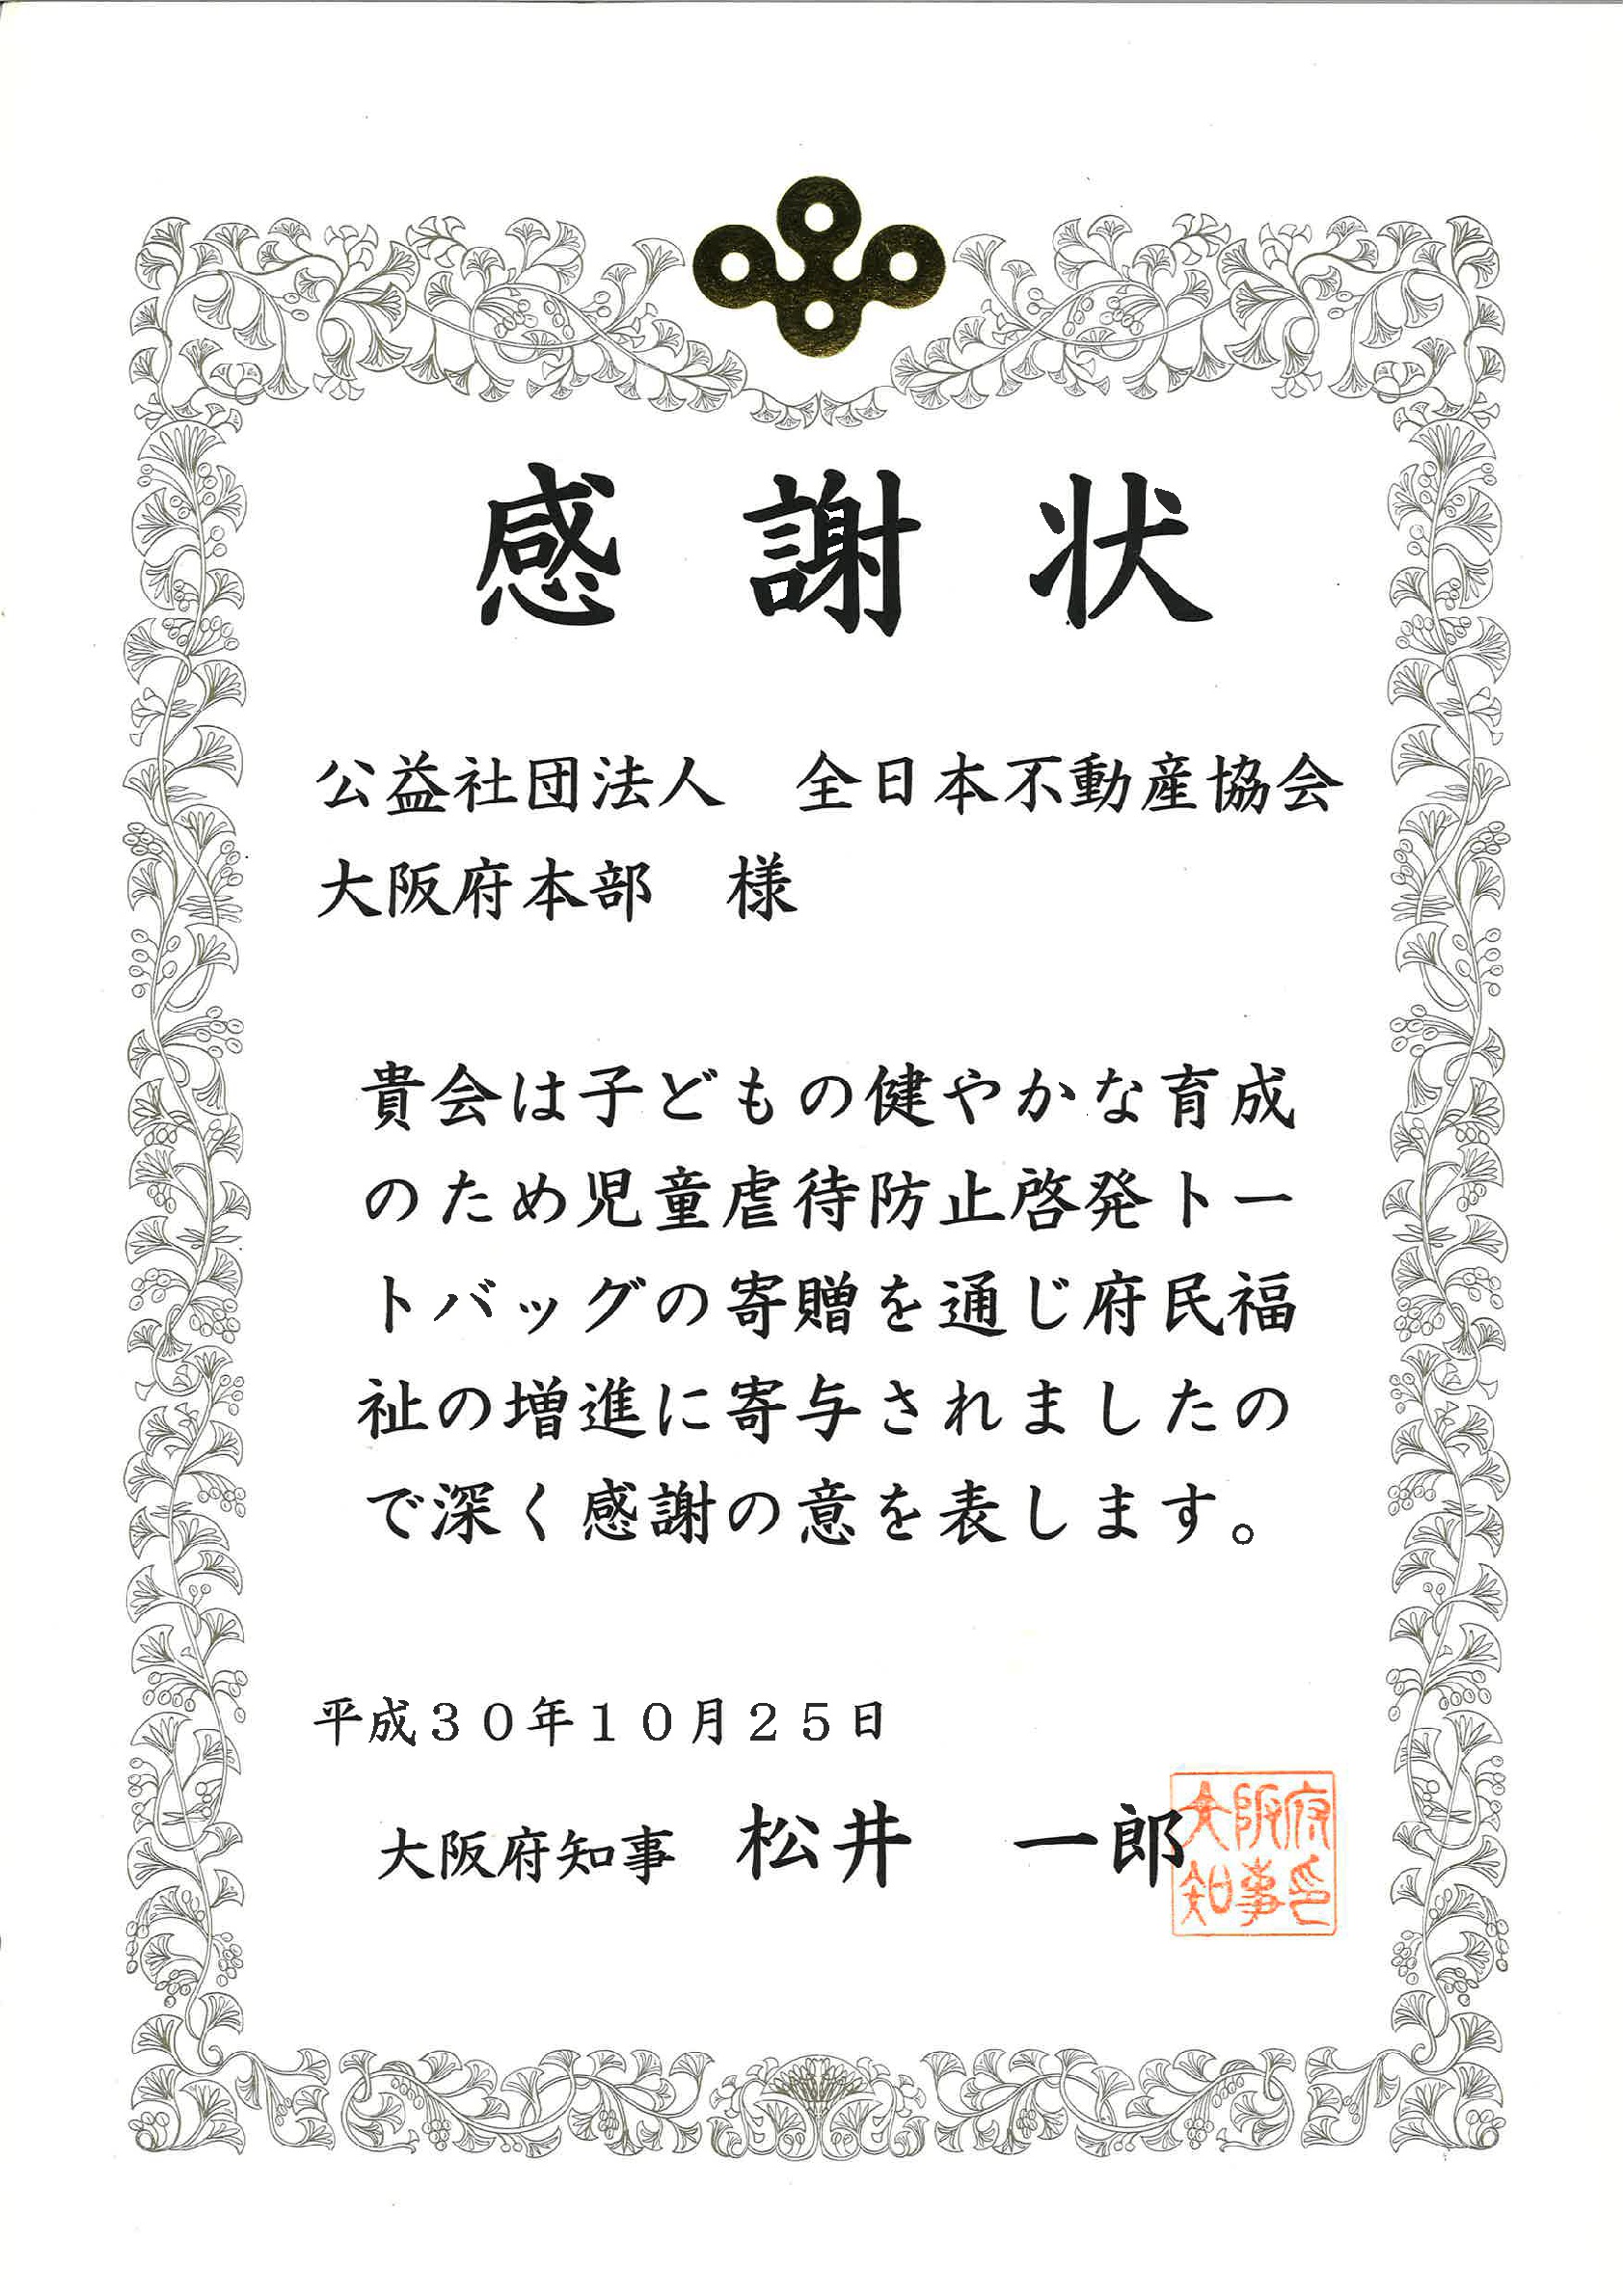 感謝状
公益社団法人　全日本不動産協会
大阪府本部　様
貴会は子どもの健やかな育成
のため児童虐待防止啓発トー
トバッグの寄贈を通じ府民福
祉の増進に寄与されましたの
で深く感謝の意を表します。
平成３０年１０月２５日
大阪府知事　松井　一郎
大阪府
知事印